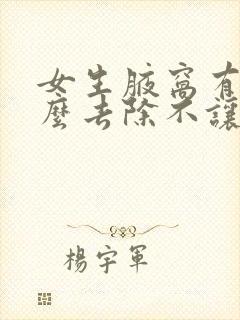 女生腋窩有
麼去除不讓
楊宇軍